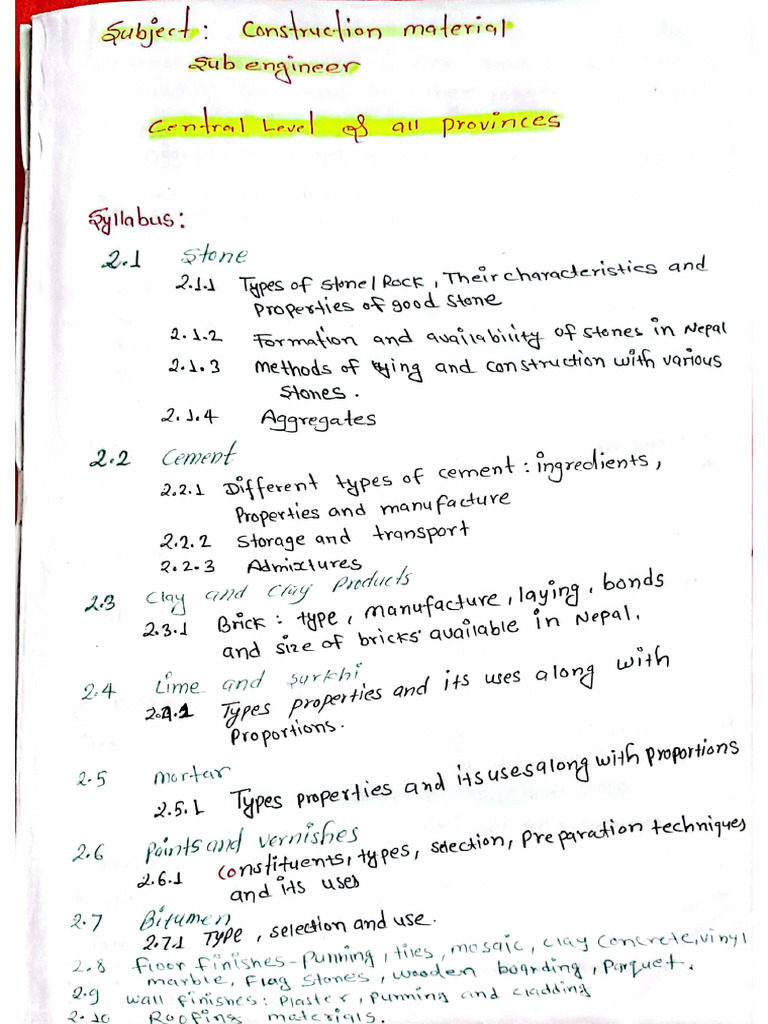 Subject: Construction material
Sub engineer
Central Level of all provinces
Syllabus:
2.1 Stone
2.1.1 Types of stone/Rock, Their characteristics and
Properties of good stone
2.1.2 Formation and availability of stones in Nepal
2.1.3 Methods of lying and construction with various
stones.
2.1.4 Aggregates
2.2 Cement
2.2.1 Different types of cement: ingredients,
Properties and manufacture
2.2.2 Storage and transport
2.2.3 Admixtures
2.3 Clay and Clay Products
2.3.1 Brick: type, manufacture, laying, bonds
and size of bricks available in Nepal.
2.4 Lime and surkhi
2.4.1 Types properties and its uses along with
Proportions.
2.5 mortar
2.5.1 Types properties and its uses along with proportions
2.6 Paints and vernishes
2.6.1 Constituents, types, selection, Preparation techniques
and its uses
2.7 Bitumen
2.7.1 Type, selection and use.
2.8 floor finishes-Punning, tiles, mosaic, clay Concrete, vinyl
marble, Flag Stones, wooden boarding, Parquet.
2.9 wall finishes: Plaster, punning and cladding
2.10 Roofing materials.